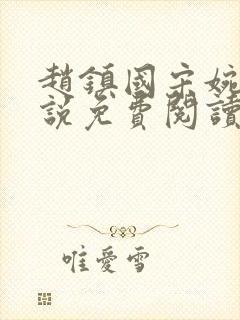 趙鎮國宋婉
說免費閱讀
唯愛雪